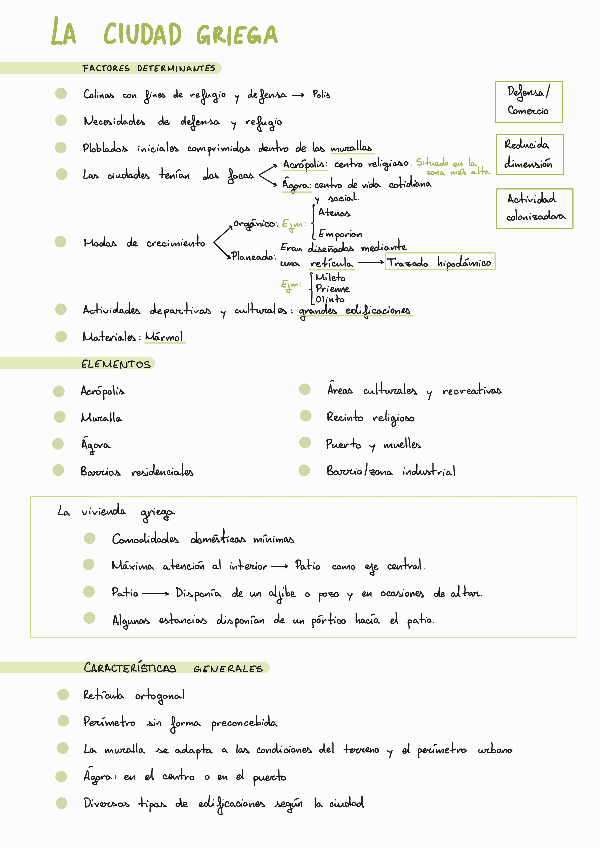 LA CIUDAD GRIEGA
FACTORES DETERMINANTES
Colinas con fines de refugio y defensa → Polis
Necesidades de defensa y refugio
Poblados iniciales comprimidos dentro de las murallas
Las ciudades tenían dos focos
Acrópolis: centro religioso. Situado en la
zona más alta
Ágora: centro de vida cotidiana
y social.
Defensa/
Comercio
Reducida
dimensión
Actividad
colonizadora
Modos de crecimiento
orgánico: Ejm:
Atenas
Emporion
Planeado: Eran diseñadas mediante
una retícula → Trazado hipodámico
Ejm:
Mileto
Prienne
Olinto
Actividades deportivas y culturales: grandes edificaciones
Materiales: Mármol
ELEMENTOS
Acrópolis
Muralla
Ágora
Barrios residenciales
Áreas culturales y recreativas
Recinto religioso
Puerto y muelles
Barrio/zona industrial
La vivienda griega
Comodidades domésticas mínimas
Máxima atención al interior → Patio como eje central.
Patio → Disponía de un aljibe o pozo y en ocasiones de altar.
Algunas estancias disponían de un pórtico hacía el patio.
CARACTERÍSTICAS GENERALES
Retícula ortogonal
Perímetro sin forma preconcebida
La muralla se adapta a las condiciones del terreno y el perímetro urbano
Ágora: en el centro o en el puerto
Diversos tipos de edificaciones según la ciudad